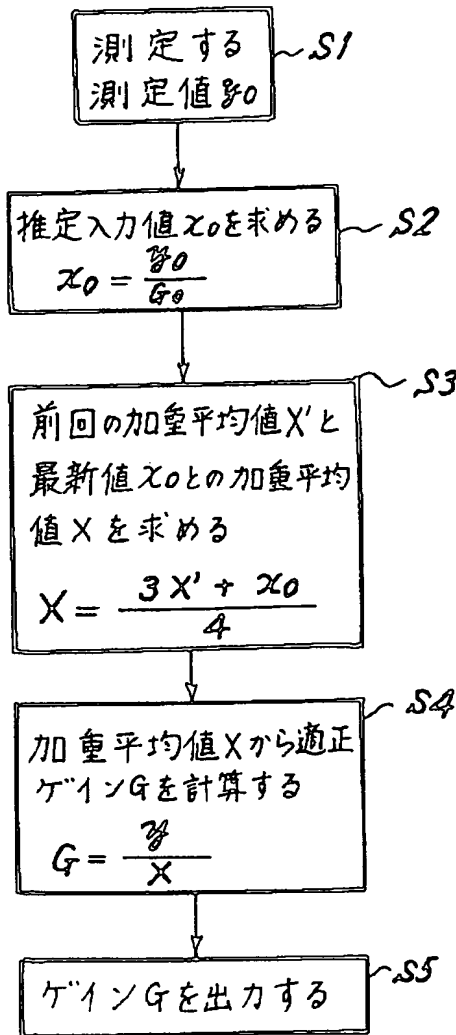 測定する
測定値y0
S1
推定入力値x0を求める
x0 = y0 / G0
S2
前回の加重平均値X'と
最新値x0との加重平均
値Xを求める
X = 3X' + x0 / 4
S3
加重平均値Xから適正
ゲインGを計算する
G = y / X
S4
ゲインGを出力する
S5